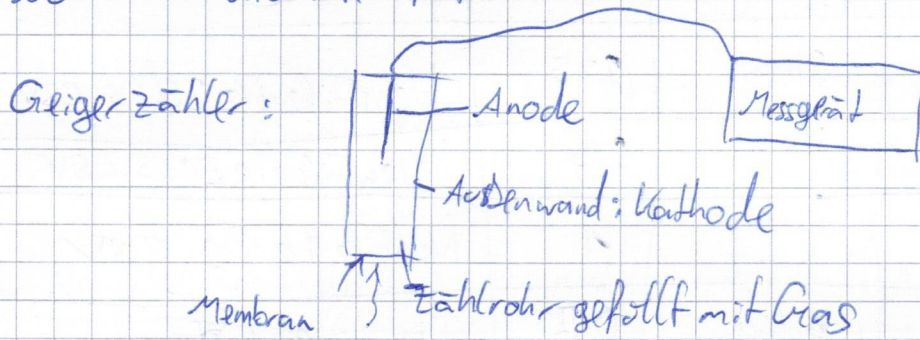 Geigerzähler:
Anode
Messgerät
Außenwand: Kathode
Membran
Zählrohr gefüllt mit Gas